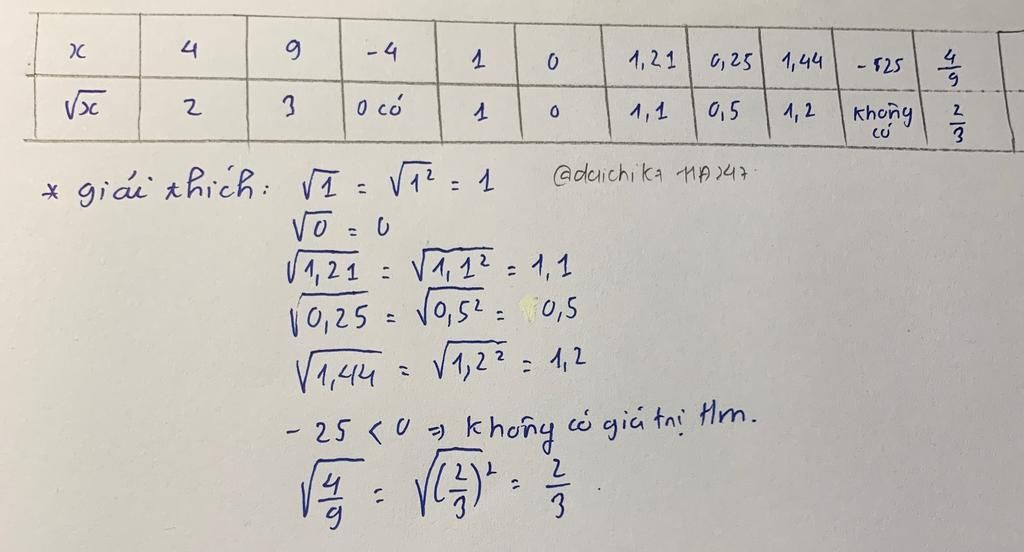 x 4 9 -4 1 0 1,21 0,25 1,44 4/9
√x 2 3 0 có 1 0 1,1 0,5 1,2 không có 2/3
* giải thích: √1 = √1² = 1
√0 = 0
√1,21 = √1,1² = 1,1
√0,25 = √0,5² = 0,5
√1,44 = √1,2² = 1,2
- 25 < 0 ⇒ không có giá trị tm.
√4/9 = √(2/3)² = 2/3.